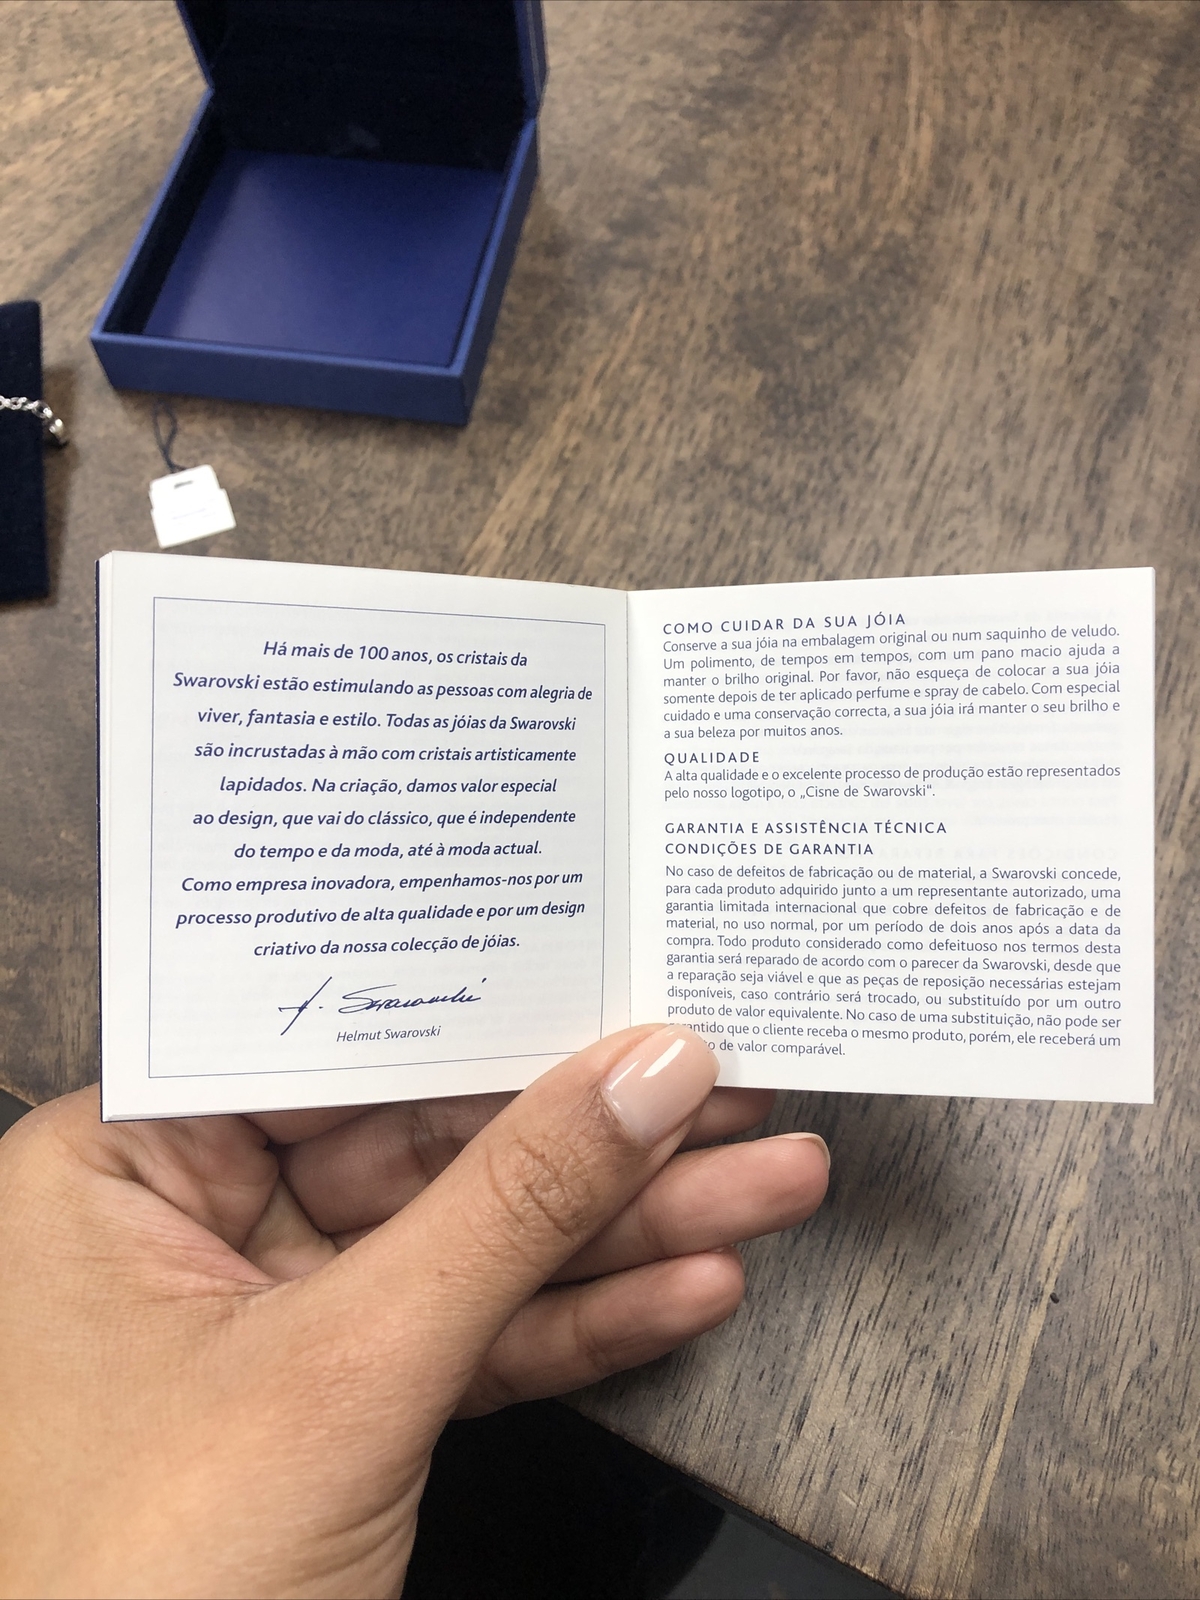 Há mais de 100 anos, os cristais da
Swarovski estão estimulando as pessoas com alegria de
viver, fantasia e estilo. Todas as jóias da Swarovski
são incrustadas à mão com cristais artisticamente
lapidados. Na criação, damos valor especial
ao design, que vai do clássico, que é independente
do tempo e da moda, até à moda actual.
Como empresa inovadora, empenhamos-nos por um
processo produtivo de alta qualidade e por um design
criativo da nossa colecção de jóias.
Helmut Swarovski
COMO CUIDAR DA SUA JÓIA
Conserve a sua jóia na embalagem original ou num saquinho de veludo.
Um polimento, de tempos em tempos, com um pano macio ajuda a
manter o brilho original. Por favor, não esqueça de colocar a sua jóia
somente depois de ter aplicado perfume e spray de cabelo. Com especial
cuidado e uma conservação correcta, a sua jóia irá manter o seu brilho e
a sua beleza por muitos anos.
QUALIDADE
A alta qualidade e o excelente processo de produção estão representados
pelo nosso logotipo, o „Cisne de Swarovski“.
GARANTIA E ASSISTÊNCIA TÉCNICA
CONDIÇÕES DE GARANTIA
No caso de defeitos de fabricação ou de material, a Swarovski concede,
para cada produto adquirido junto a um representante autorizado, uma
garantia limitada internacional que cobre defeitos de fabricação e de
material, no uso normal, por um período de dois anos após a data da
compra. Todo produto considerado como defeituoso nos termos desta
garantia será reparado de acordo com o parecer da Swarovski, desde que
a reparação seja viável e que as peças de reposição necessárias estejam
disponíveis, caso contrário será trocado, ou substituído por um outro
produto de valor equivalente. No caso de uma substituição, não pode ser
garantido que o cliente receba o mesmo produto, porém, ele receberá um
de valor comparável.